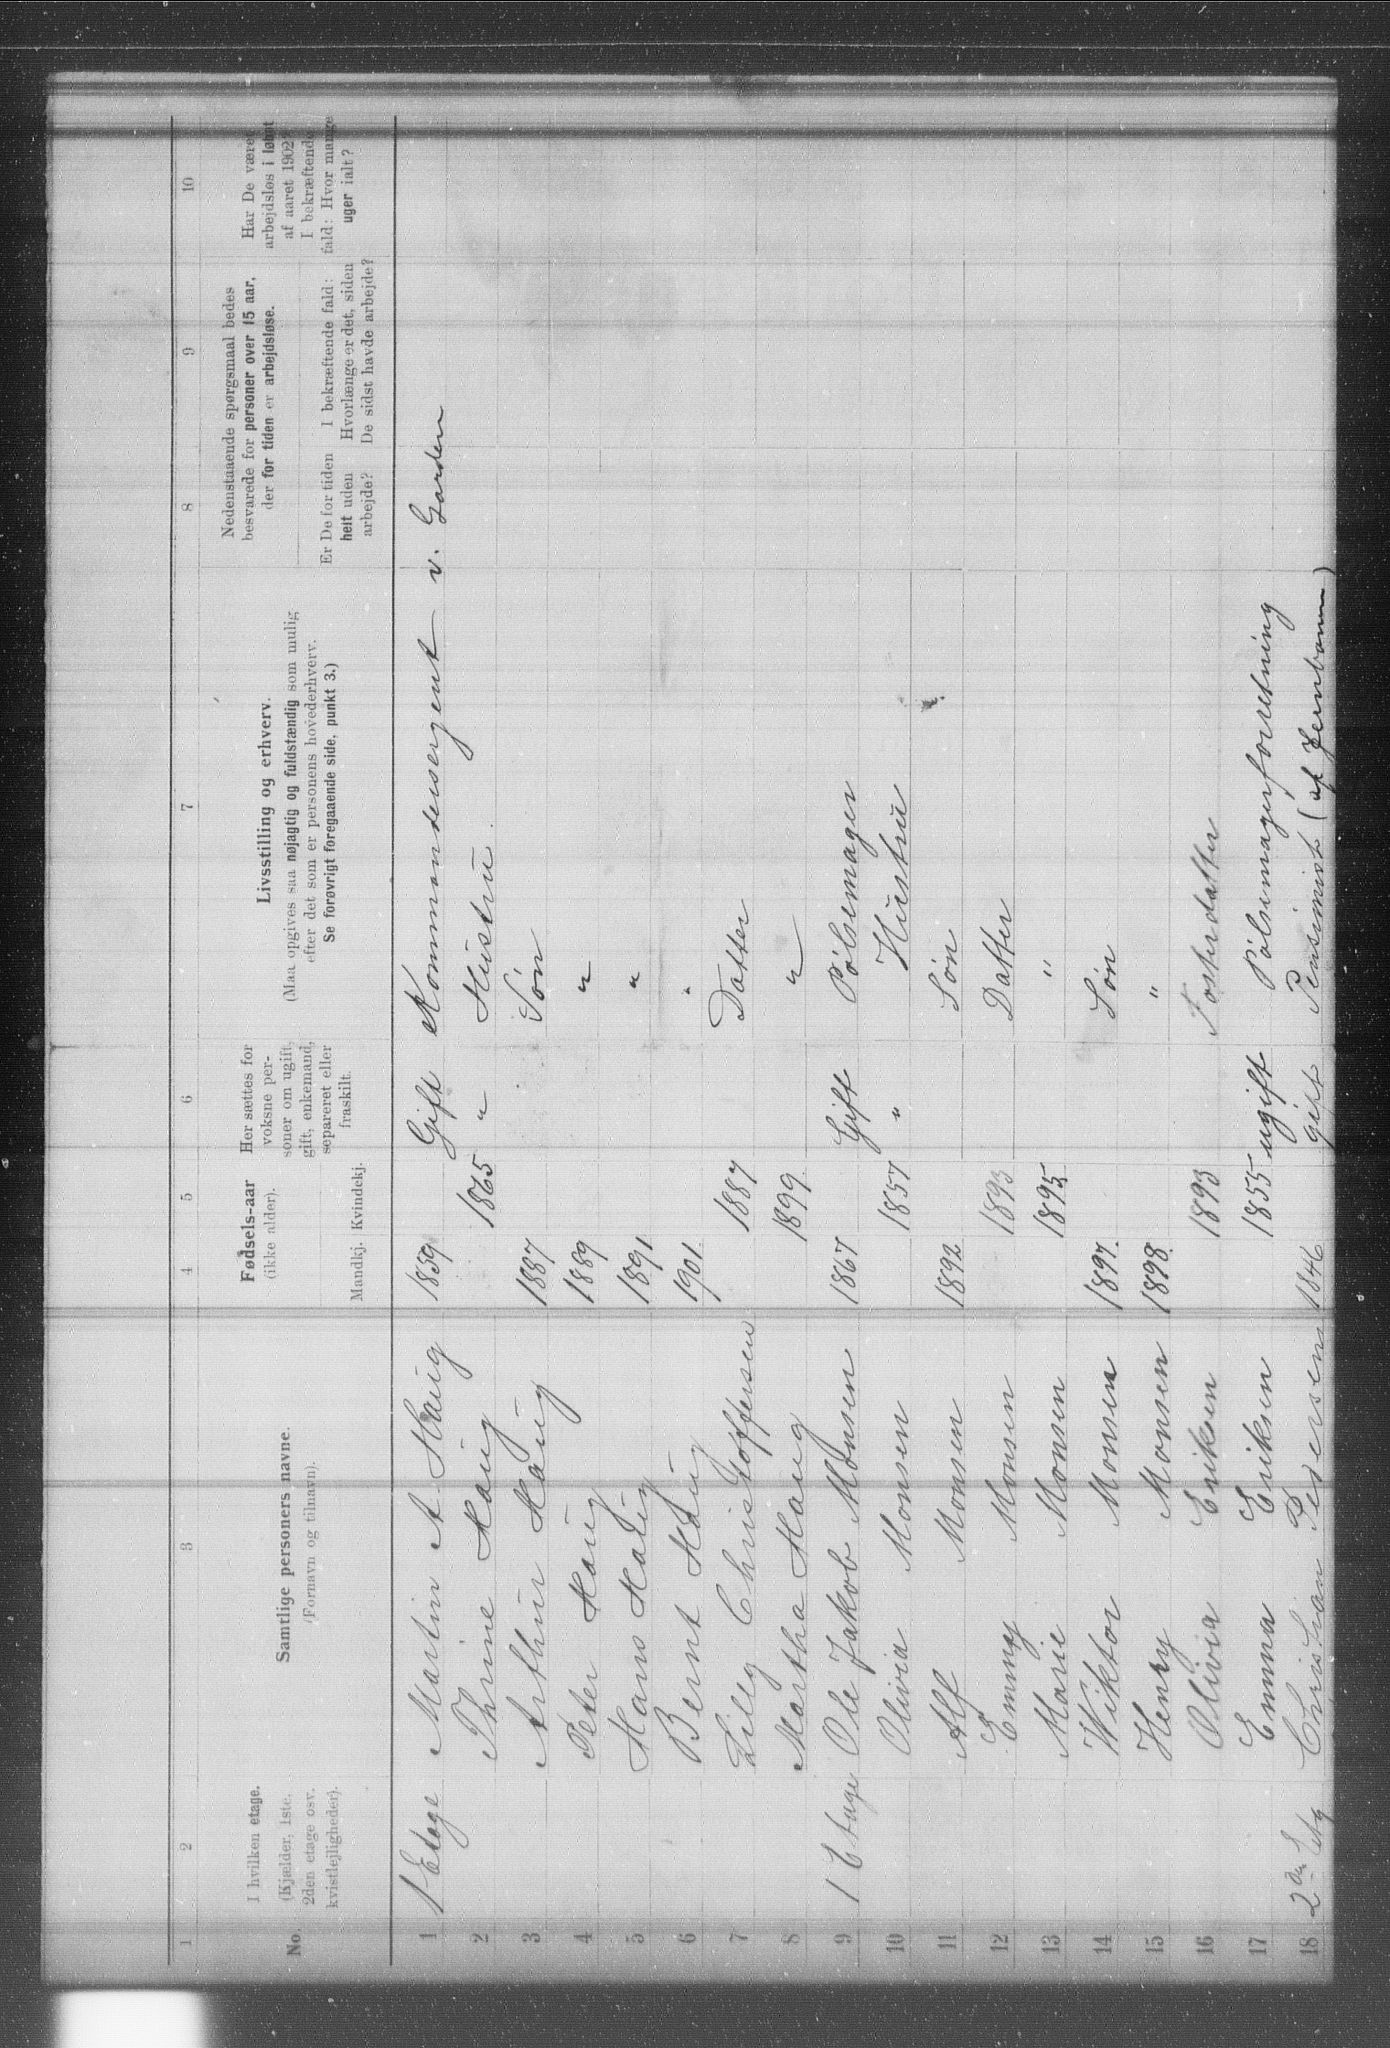 1 2 3 4 5 6 7 8 9 10
No.
I hvilken etage.
(Kjælder, 1ste.
2den etage osv.
kvistlejligheder).
Samtlige personers navne.
(Fornavn og tilnavn).
Fødsels-aar
(ikke alder).
Mandkj. Kvindekj.
Her sættes for
voksne per-
soner om ugift,
gift, enkemand,
separeret eller
fraskilt.
Livsstilling og erhverv.
(Maa opgives saa nøjagtig og fuldstændig som mulig
efter det som er personens hovederhverv.
Se forøvrigt foregaaende side, punkt 3.)
Nedenstaaende spørgsmaal bedes
besvarede for personer over 15 aar,
der for tiden er arbejdsløse.
Er De for tiden
helt uden
arbejde?
I bekræftende fald:
Hvorlænge er det, siden
De sidst havde arbejde?
Har De været
arbejdsløs i løbet
af aaret 1902?
I bekræftende
fald: Hvor mange
uger ialt?
1 1 Etage Martin A. Haug 1859 Gift Kommandersergent v. Garden
2 Thrine Haug 1865 " Hustru
3 Arthur Haug 1887 Søn
4 Peter Haug 1889 "
5 Hans Haug 1891 "
6 Bernt Haug 1901 "
7 Lilly Christoffersen 1887 Datter
8 Martha Haug 1899 "
9 1 Etage Ole Jakob Monsen 1867 Gift Pølsemager
10 Olivia Monsen 1857 " Hustru
11 Alf Monsen 1892 Søn
12 Emmy Monsen 1893 Datter
13 Marie Monsen 1895 "
14 Wiktor Monsen 1897 Søn
15 Henry Monsen 1898 "
16 Olivia Eriksen 1893 Fosterdatter
17 Emma Eriksen 1855 ugift Pølsemagerforretning
18 2den Etg Christian Pedersen 1846 gift Pensionist (af Jernbanen)